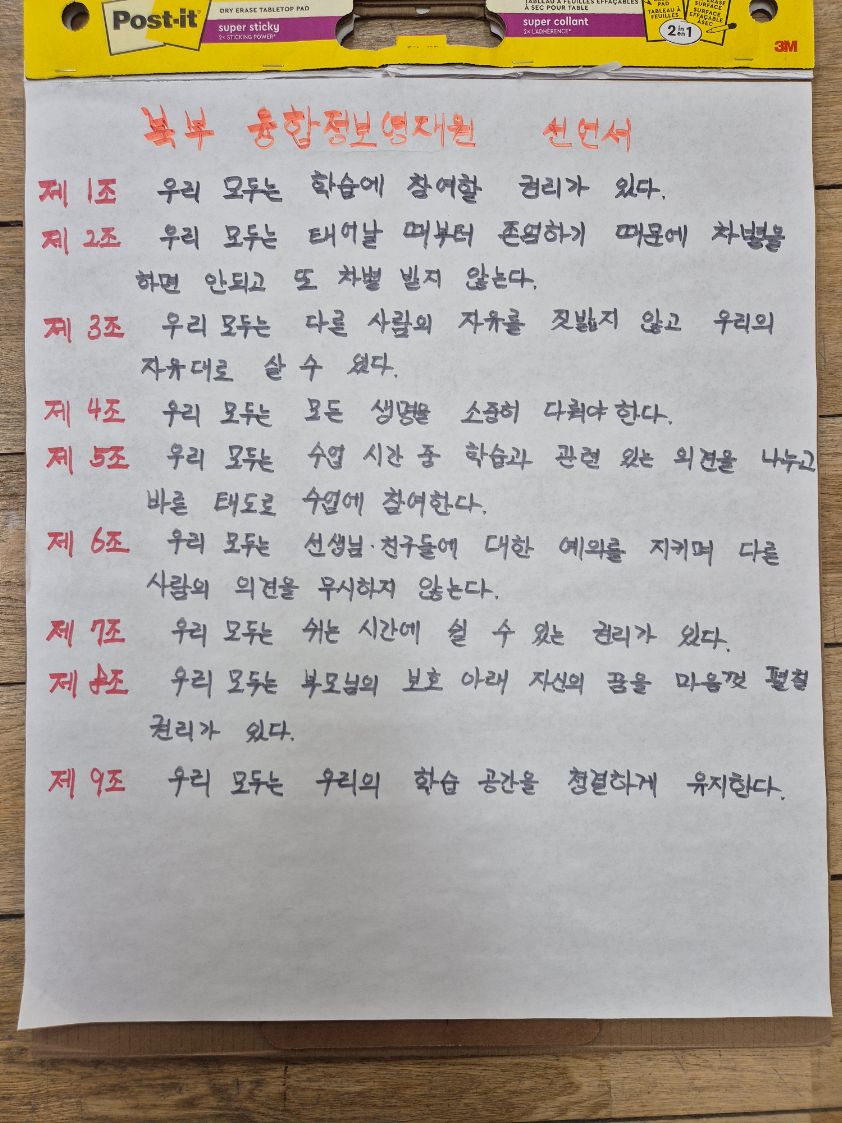 Post-it
DRY ERASE TABLETOP PAD
super sticky
2X STICKING POWER*
TABLEAU À FEUILLES EFFAÇABLES
À SEC POUR TABLE
super collant
2X L'ADHÉRENCE*
PAD
TABLEAU À
FEUILLES
SURFACE
SURFACE
EFFAÇABLE
À SEC
2 en 1
3M
북부 융합정보영재원 선언서
제 1조 우리 모두는 학습에 참여할 권리가 있다.
제 2조 우리 모두는 태어날 때부터 존엄하기 때문에 차별을
하면 안되고 또 차별 받지 않는다.
제 3조 우리 모두는 다른 사람의 자유를 짓밟지 않고 우리의
자유대로 살 수 있다.
제 4조 우리 모두는 모든 생명을 소중히 다뤄야 한다.
제 5조 우리 모두는 수업 시간 중 학습과 관련 있는 의견을 나누고
바른 태도로 수업에 참여한다.
제 6조 우리 모두는 선생님·친구들에 대한 예의를 지키며 다른
사람의 의견을 무시하지 않는다.
제 7조 우리 모두는 쉬는 시간에 쉴 수 있는 권리가 있다.
제 8조 우리 모두는 부모님의 보호 아래 자신의 꿈을 마음껏 펼칠
권리가 있다.
제 9조 우리 모두는 우리의 학습 공간을 청결하게 유지한다.